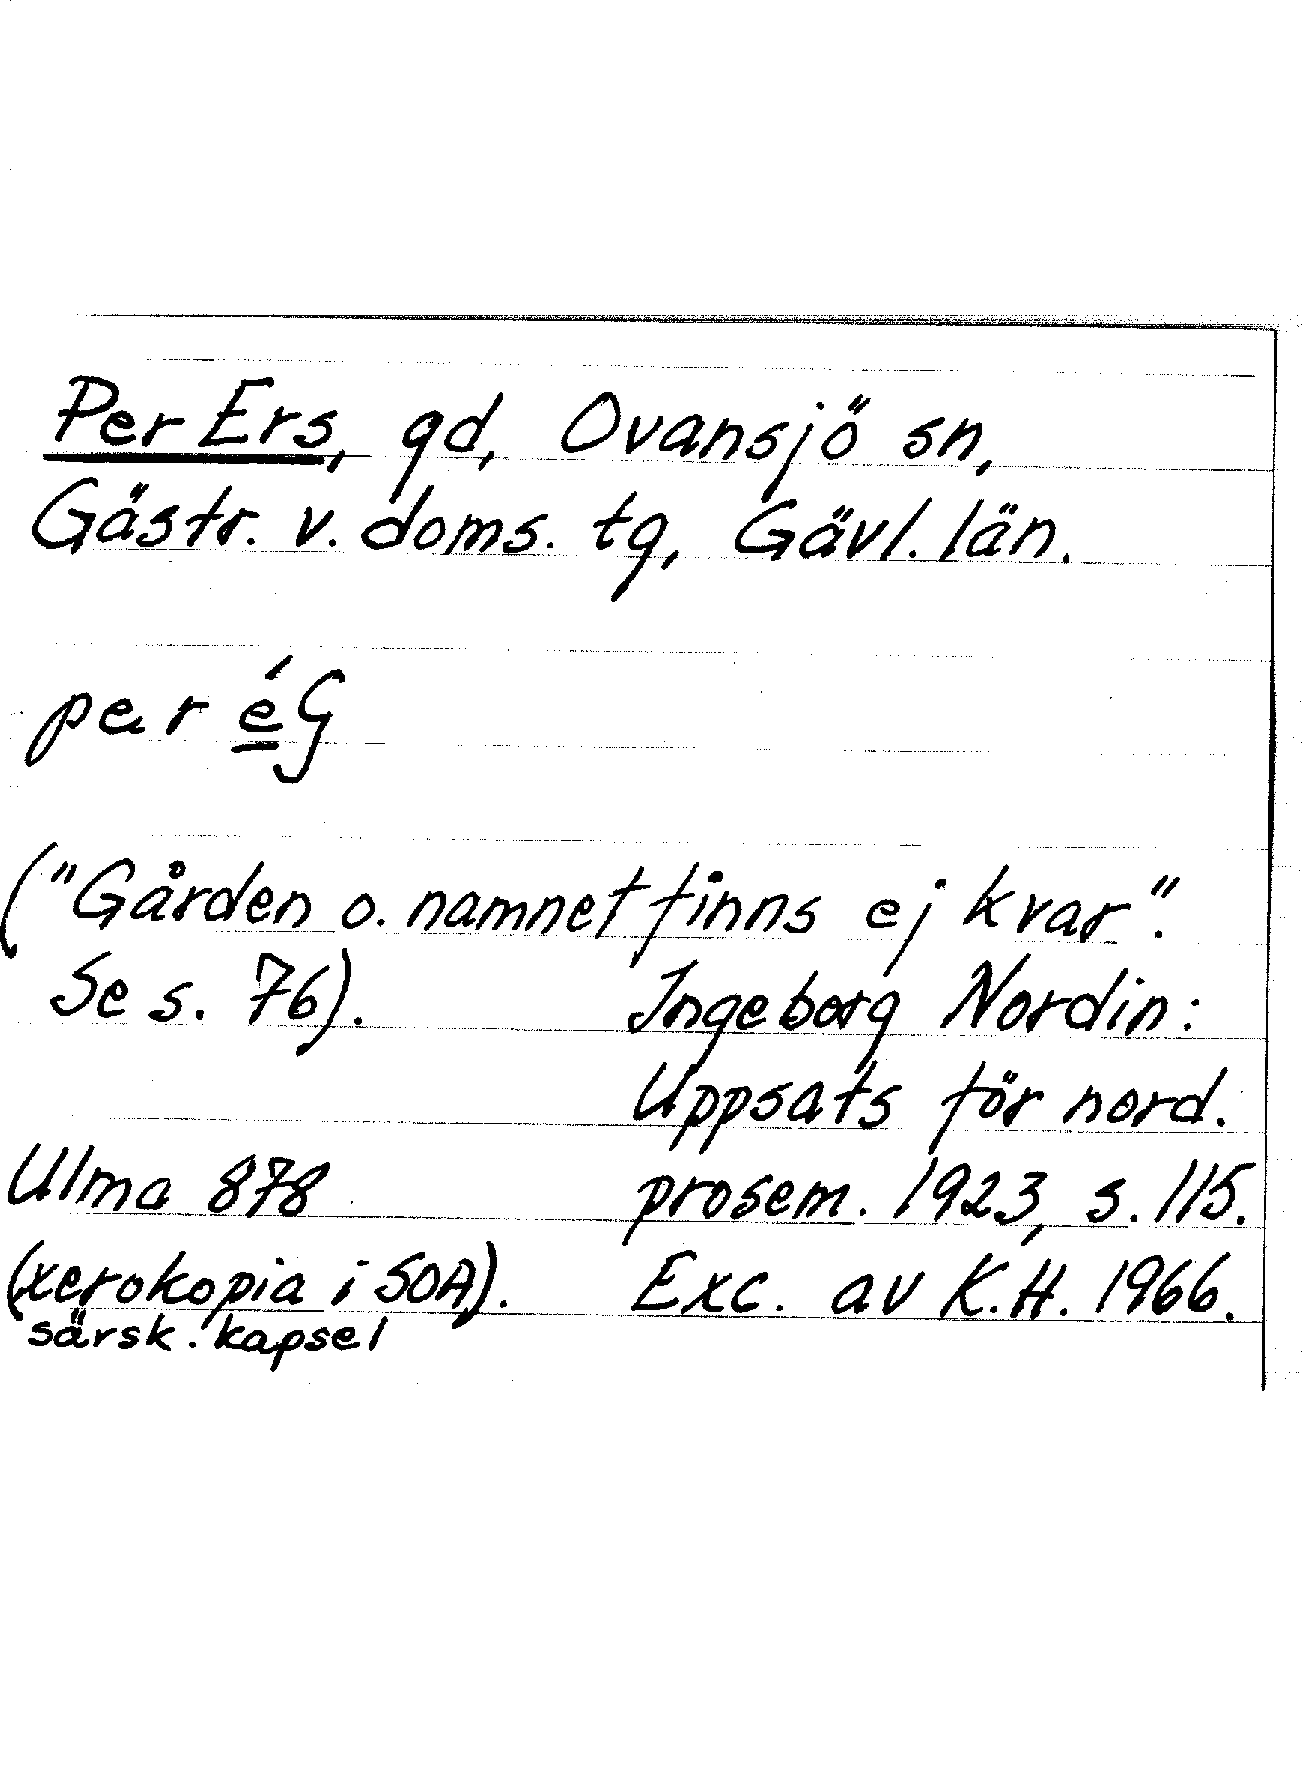 Per Ers, gd, Ovansjö sn,
Gästr. v. doms. tg, Gävl. län.
per éʃ
("Gården o. namnet finns ej kvar".
Se s. 76).
Ingeborg Nordin:
Uppsats för nord.
prosem. 1923, s. 115.
Exc. av K.H. 1966.
Ulma 878
(xerokopia i SOA).
särsk. kapsel